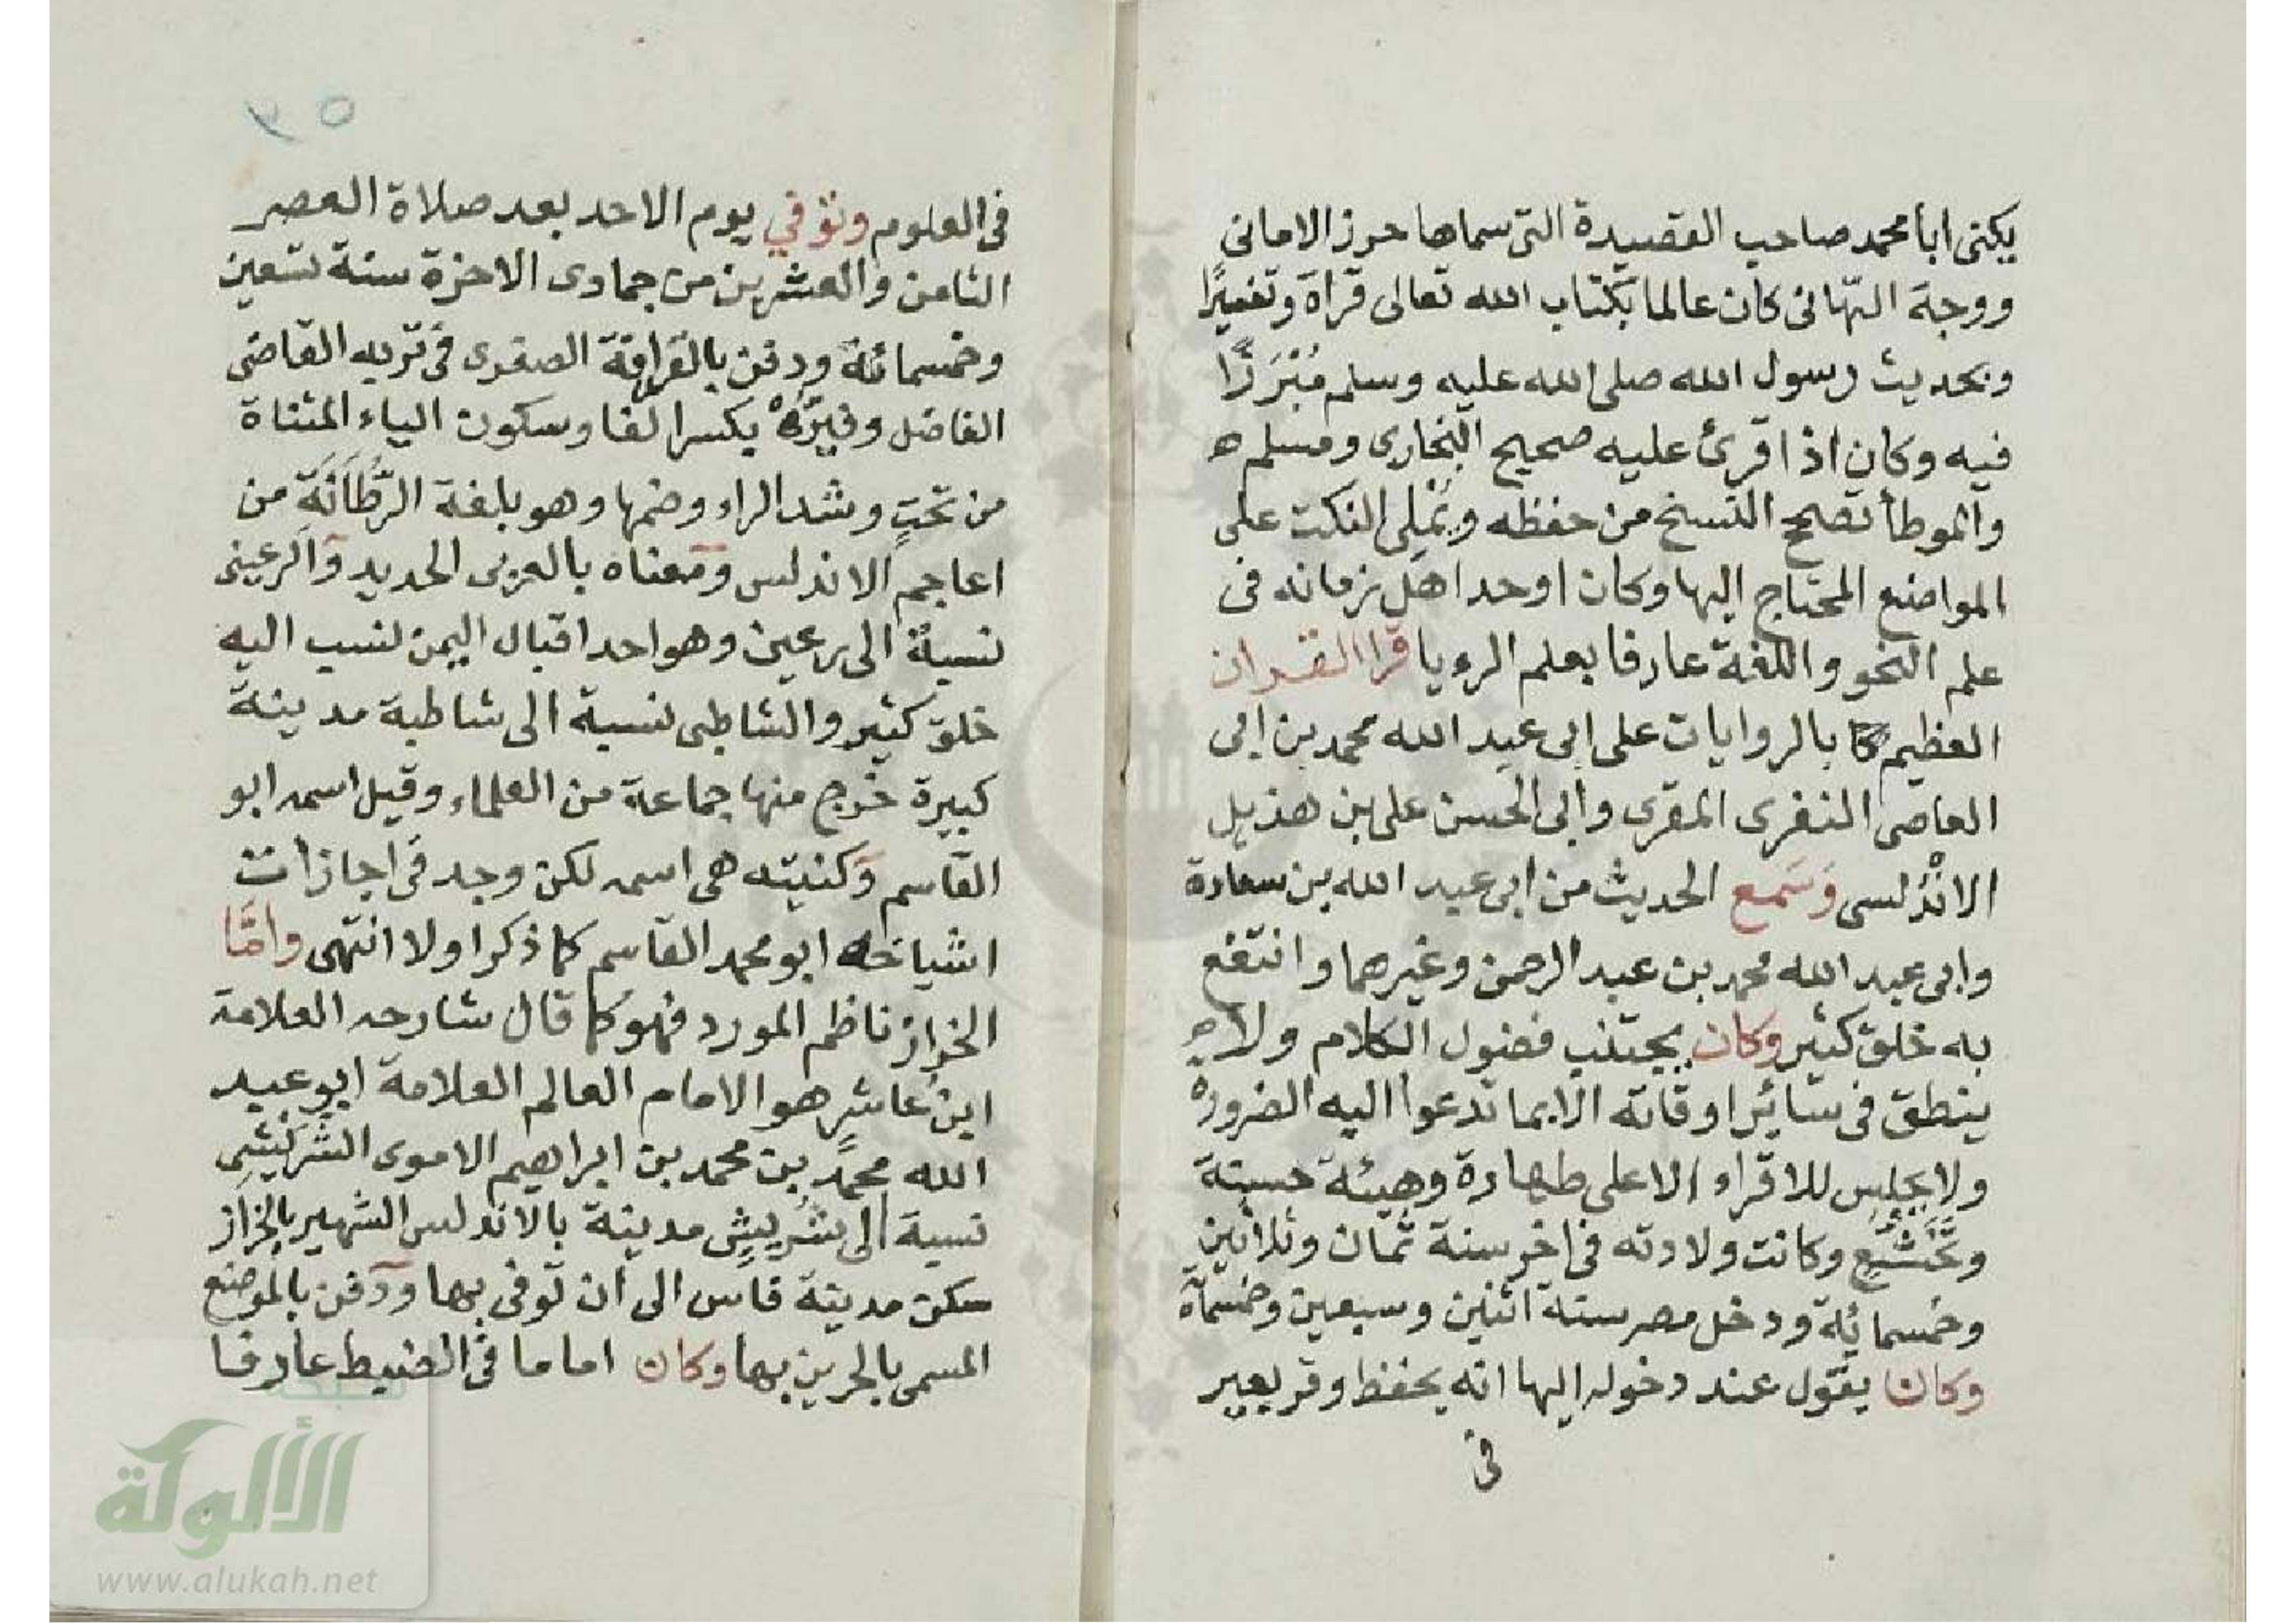 يكنى ابا محمد صاحب القصيدة التى سماها حرز الامانى
ووجه التهانى كان عالما بكتاب الله تعالى قراة وتفسيرًا
وبحديث رسول الله صلى الله عليه وسلم مُبَرَّزًا
فيه وكان اذا قرئ عليه صحيح البخارى ومسلم
والموطأ تصحح النسخ من حفظه ويُملى النكت على
المواضع المحتاج اليها وكان اوحد اهل زمانه فى
علم النحو واللغة عارفا بعلم الرويا قرا القران
العظيم بالروايات على ابى عبد الله محمد بن ابى
العاصى النفرى المقرى وابى الحسن على بن هذيل
الاندلسى وَسَمع الحديث من ابى عبد الله بن سعادة
وابى عبد الله محمد بن عبد الرحمن وغيرهما وانتفع
به خلق كثير وكان يجتنب فضول الكلام ولا
ينطق فى سائر اوقاته الا بما تدعوا اليه الضرورة
ولا يجلس للاقراء الا على طهارة وهيئة حسنة
وتَخَشُّعٍ وكانت ولادته فى اخر سنة ثمان وثلاثين
وخمسمائة ودخل مصر سنة اثنين وسبعين وخمسمأة
وكان يقول عند دخوله اليها انه يحفظ وقر بعير
فى
٣٥
فى العلوم وتوفي يوم الاحد بعد صلاة العصر
الثامن والعشرين من جمادى الاخرة سنة تسعين
وخمسمائة ودفن بالقرافة الصغرى فى تربه القاضى
الفاضل وفيرُّهْ بكسر الفا وسكون الياء المثناة
من تحت وشد الراء وضمها وهو بلغة الرَّطَانَةِ من
اعاجم الاندلس ومعناه بالعربى الحديد والرعينى
نسبة الى رعين وهو احد اقيال اليمن نسب اليه
خلق كثير والشاطبى نسبة الى شاطبة مدينة
كبيرة خرج منها جماعة من العلماء وقيل اسمه ابو
القاسم وكنيته هى اسمه لكن وجد فى اجازات
اشياخه ابو محمد القاسم كما ذكر اولا انتهى وامَّا
الخراز ناظم المورد فهو كما قال شارحه العلامة
ابن عاشر هو الامام العالم العلامة ابو عبد
الله محمد بن محمد بن ابراهيم الاموى الشَّرِيشِى
نسبة الى شَرِيشٍ مدينة بالاندلس الشهير بالخراز
سكن مدينة فاس الى ان توفى بها ودفن بالموضع
المسمى بالجرين بها وكان اماما فى الضبط عارفا
شبكة
الألوكة
www.alukah.net